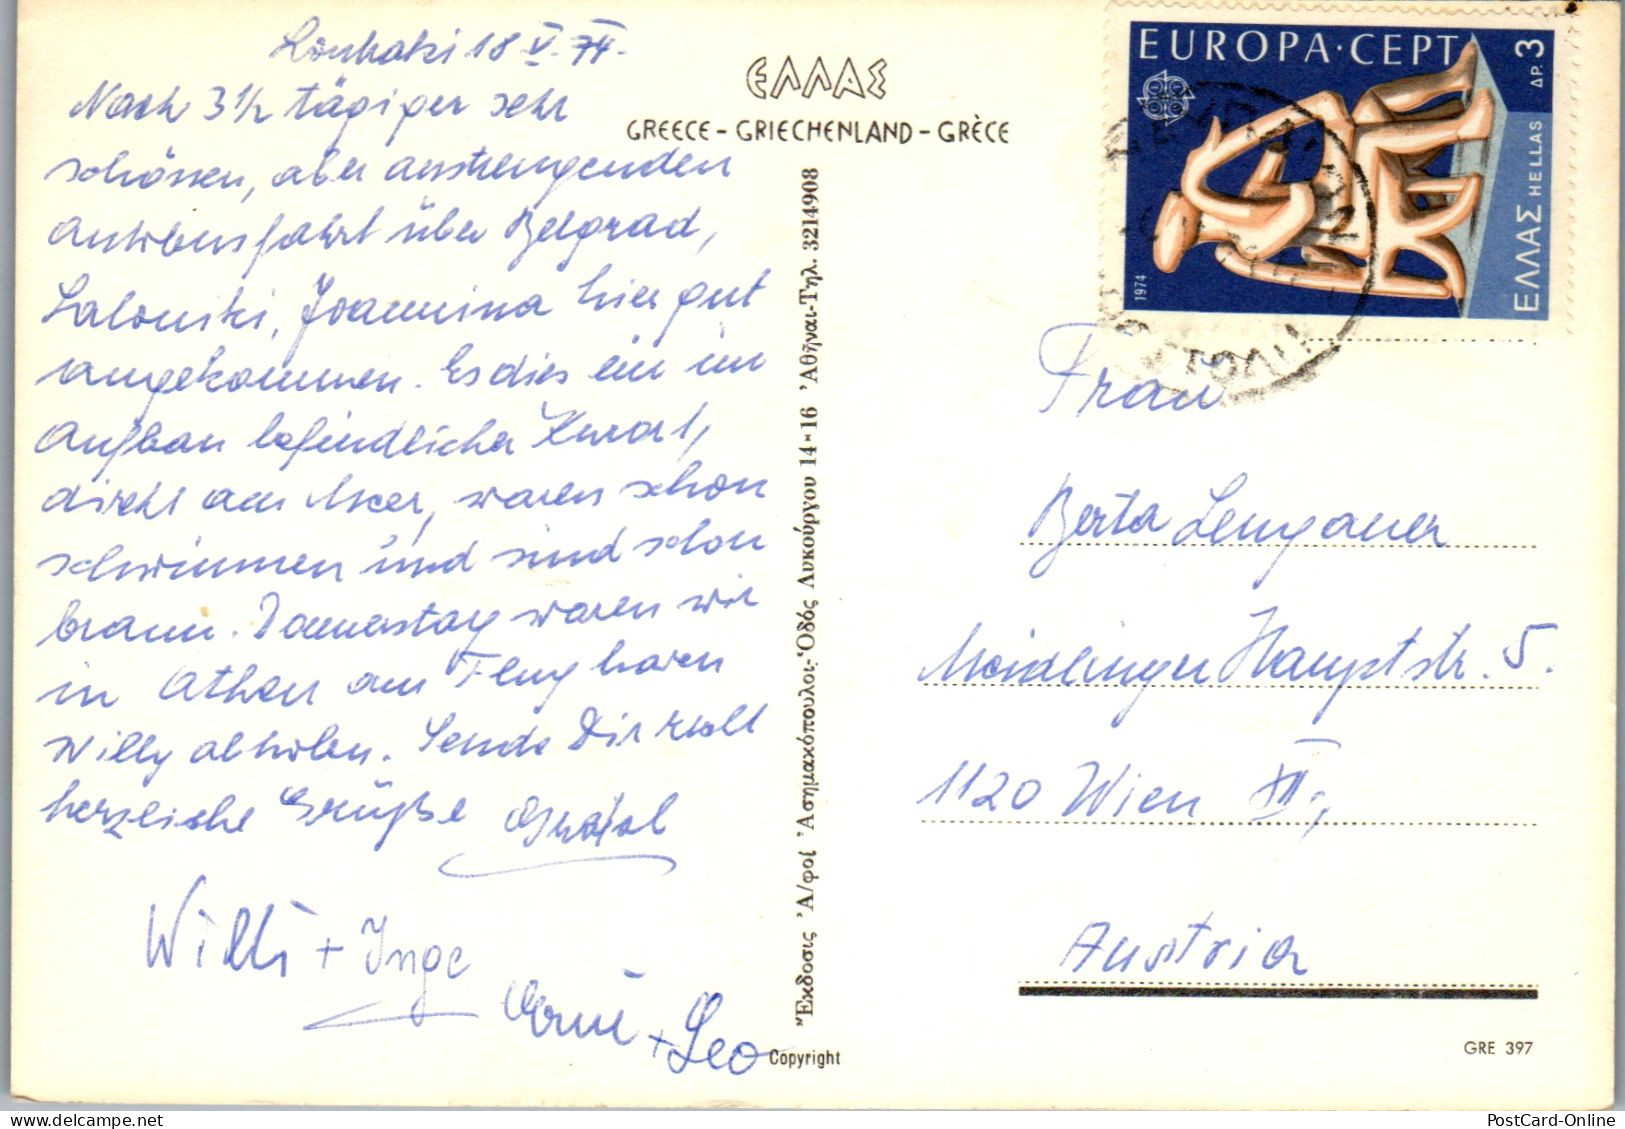 Loutraki 18 V. 74.
Nach 3 1/2 tägiger sehr
schönen, aber anstrengenden
Autobusfahrt über Belgrad,
Saloniki, Joannina hier gut
angekommen. Es dies ein im
Aufbau befindlicher Kurort,
direkt am Meer, waren schon
schwimmen und sind schon
braun. Donnerstag waren wir
in Athen am Flughafen
Willy abholen. Sende Dir recht
herzliche Grüße
Willi + Inge
+ Leo
ΕΛΛΑΣ
GREECE – GRIECHENLAND – GRÈCE
Ἔκδοσις Ἀ/φοὶ Ἀσημακόπουλοι-Ὁδός Λυκούργου 14-16 Ἀθῆναι-Τηλ. 3214908
Copyright
EUROPA·CEPT
ΔΡ. 3
ΕΛΛΑΣ HELLAS
1974
Frau
Berta Lengauer
Meidlinger Hauptstr. 5.
1120 Wien XII;
Austria
GRE 397
delcampe.net
PostCard-Online